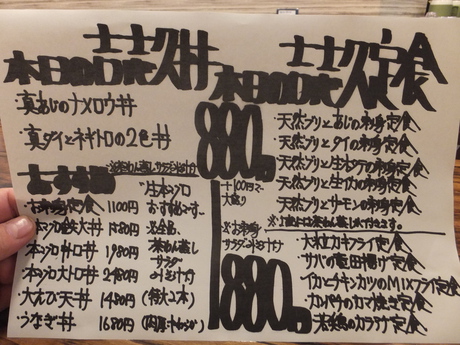 本日の日替丼
真あじのナメロウ丼
真ダイとネギトロの2色丼
880円
+100円で大盛り
おすすめ
お刺身定食 1100円
本マグロ鉄火丼 1380円
本マグロ中トロ丼 1980円
本マグロ大トロ丼 2480円
大えび天丼 1480円 (特大2本)
うなぎ丼 1680円
生本マグロ
おすすめです
※全品、
茶わん蒸し
サラダ
本日の日替定食
・天然ブリとあじの刺身定食
・天然ブリとタイの刺身定食
・天然ブリと生ホタテの刺身定食
・天然ブリと生イカの刺身定食
・天然ブリとサーモンの刺身定食
880円
・大粒カキフライ定食
・サバの竜田揚げ定食
・イカとチキンカツのMIXフライ定食
・カンパチのカマ焼き定食
・若鶏のカラアゲ定食